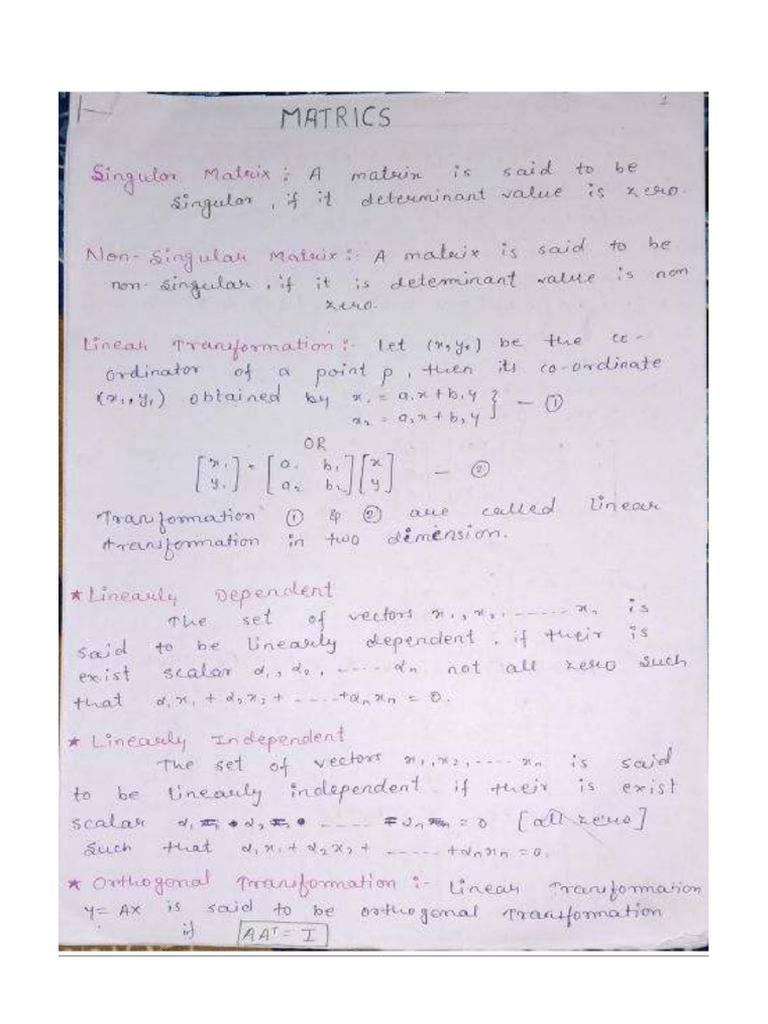 1
MATRICS
Singular Matrix :- A matrix is said to be
singular, if it determinant value is zero.
Non-Singular Matrix :- A matrix is said to be
non-singular, if it is deteminant value is non
zero.
Linear Transformation :- Let (x, y) be the co-
ordinator of a point p, then its co-ordinate
(x₁, y₁) obtained by x₁ = a₁x + b₁y } — ①
x₂ = a₂x + b₂y
OR
[x₁ y₁] = [a₁ b₁ a₂ b₂] [x y] — ②
Transformation ① & ② are called linear
transformation in two dimension.
* Linearly Dependent
The set of vectors x₁, x₂, ------ xₙ is
said to be linearly dependent, if their is
exist scalar α₁, α₂, ----- αₙ not all zero such
that α₁x₁ + α₂x₂ + ----- + αₙxₙ = 0.
* Linearly Independent
The set of vectors x₁, x₂, ----- xₙ is said
to be linearly independent if their is exist
scalar α₁ = α₂ = ------ = αₙ = 0 [all zero]
such that α₁x₁ + α₂x₂ + ------ + αₙxₙ = 0.
* Orthogonal Transformation :- Linear Transformation
y = AX is said to be orthogonal Transformation
if AAᵀ = I